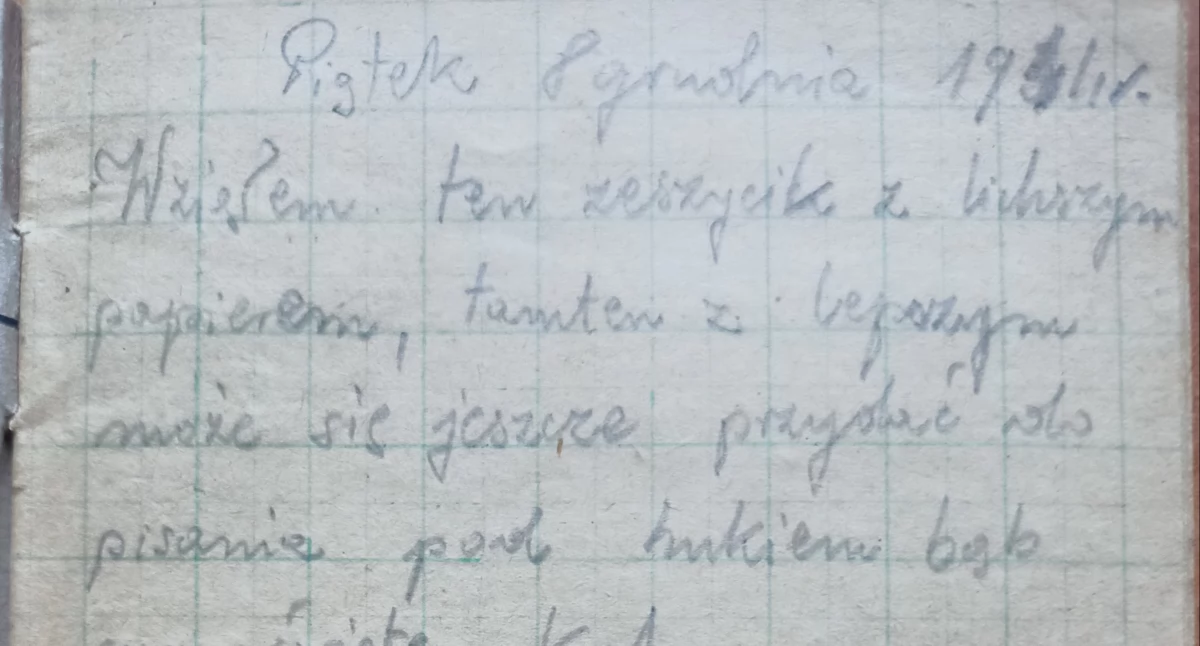 Piątek 8 grudnia
Wziąłem ten zeszycik z lichszym
papierem, tamten z lepszym
może się jeszcze przydać do
pisania pod hukiem bąb